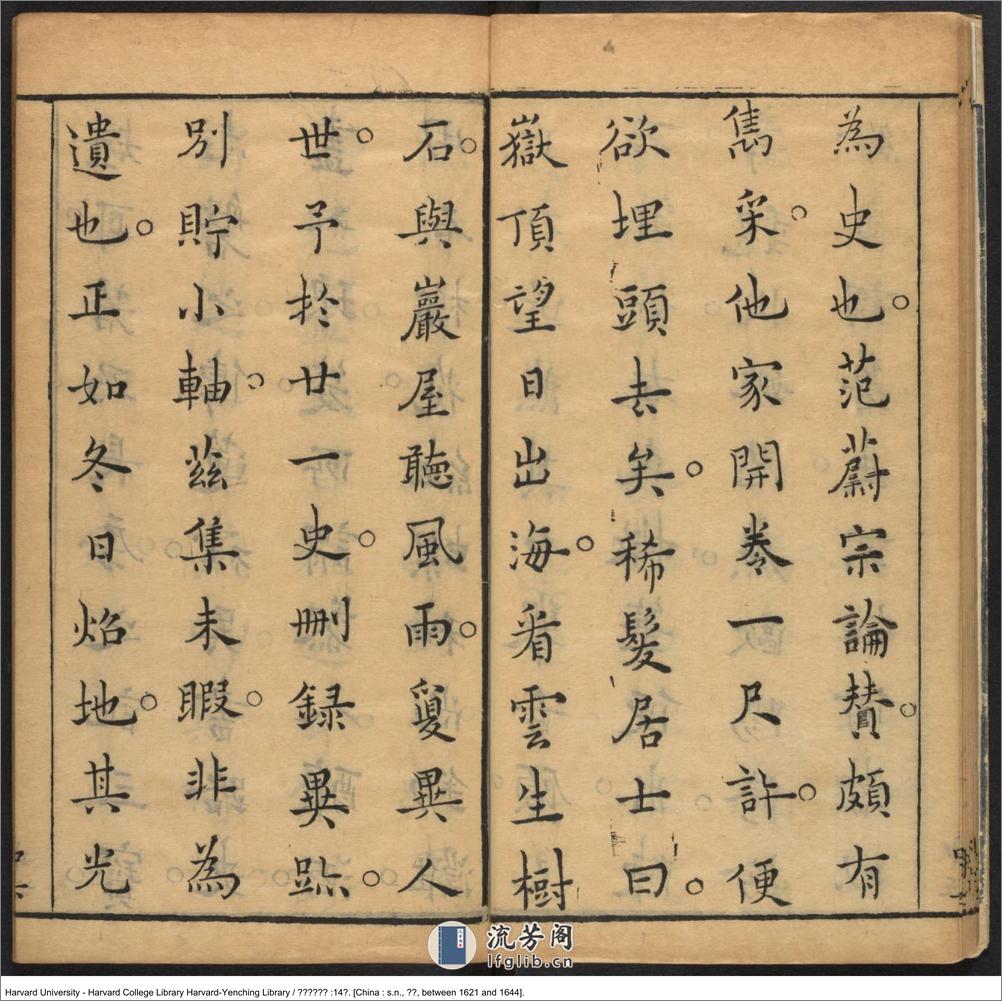 為史也。范蔚宗論賛。頗有
雋采。他家開卷一尺許。便
欲埋頭去矣。稀髮居士曰。
嶽頂望日出海。看雲生樹
石。與巖屋聽風雨。夐異人
世。予於廿一史。刪録異跡。
別貯小軸。茲集未暇。非為
遺也。正如冬日焰地。其光
流芳阁
lfglib.cn
Harvard University - Harvard College Library Harvard-Yenching Library / ?????? :14?. [China : s.n., ??, between 1621 and 1644].